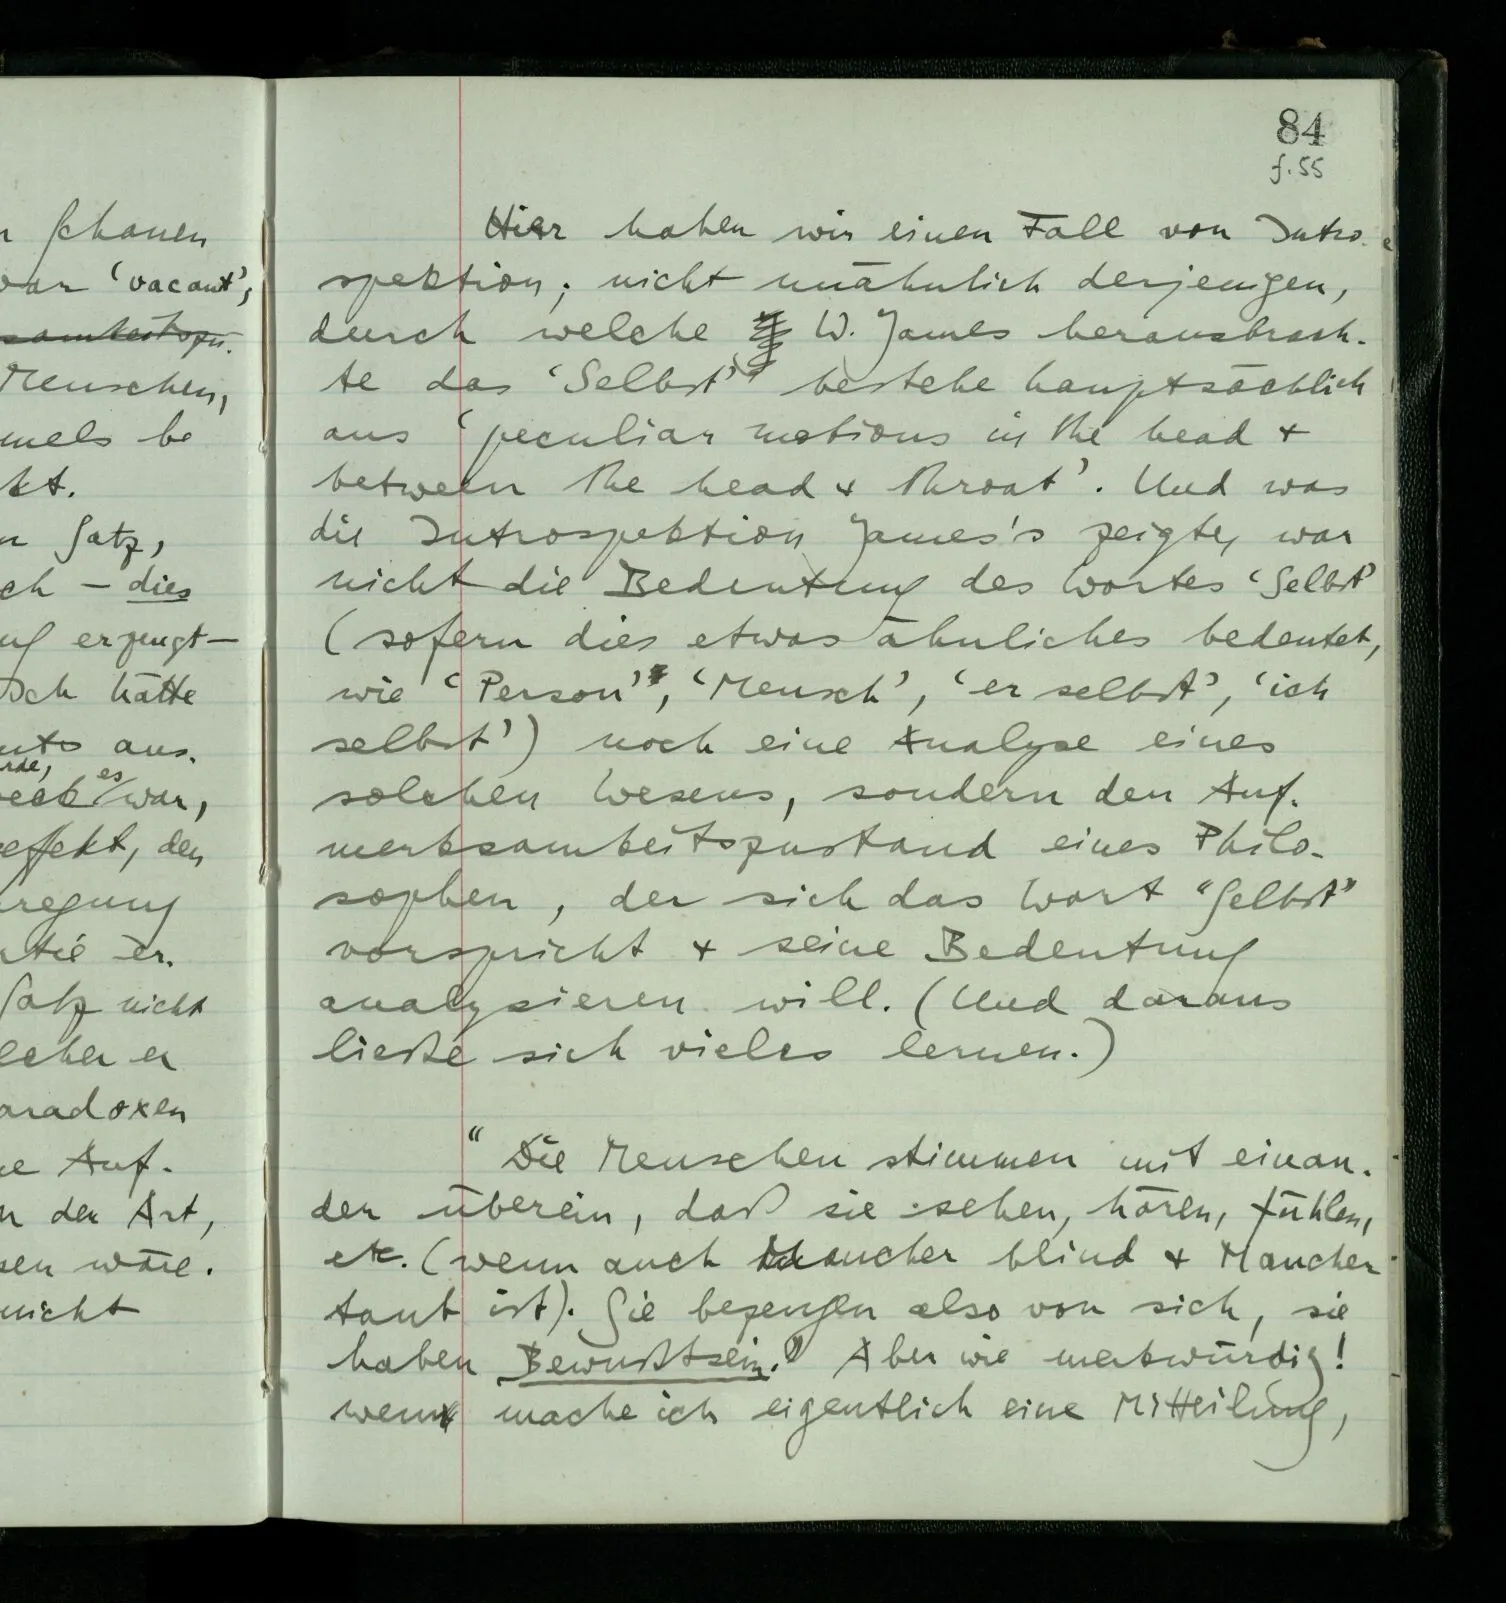 84
f. 55
Schauen
war 'vacant',
Menschen,
be
kt.
Satz,
ch – dies
erzeugt –
hätte
aus.
es
war,
effekt, den
regung
er.
Satz nicht
er
paradoxen
Auf-
der Art,
wäre.
nicht
Hier haben wir einen Fall von Intro-
spektion; nicht unähnlich derjenigen,
durch welche W. James herausbrach-
te das 'Selbst' bestehe hauptsächlich
aus 'peculiar motions in the head +
between the head + throat'. Und was
die Introspektion James's zeigte, war
nicht die Bedeutung des Wortes 'Selbst'
(sofern dies etwas ähnliches bedeutet,
wie 'Person', 'Mensch', 'er selbst', 'ich
selbst') noch eine Analyse eines
solchen Wesens, sondern den Auf-
merksamkeitszustand eines Philo-
sophen, der sich das Wort "Selbst"
vorspricht + seine Bedeutung
analysieren will. (Und daraus
ließe sich vieles lernen.)
"Die Menschen stimmen mit einan-
der überein, daß sie sehen, hören, fühlen,
etc. (wenn auch Mancher blind + Mancher
taub ist). Sie bezeugen also von sich, sie
haben Bewußtsein." Aber wie merkwürdig!
wem mache ich eigentlich eine Mitteilung,